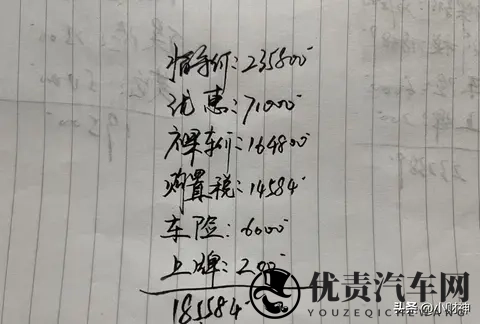 指导价:235800
优惠:71000
裸车价:164800
购置税:14584
车险:6000
上牌:200
185584
优责汽车网
YOUZEQICHEWANG
头条@小财神